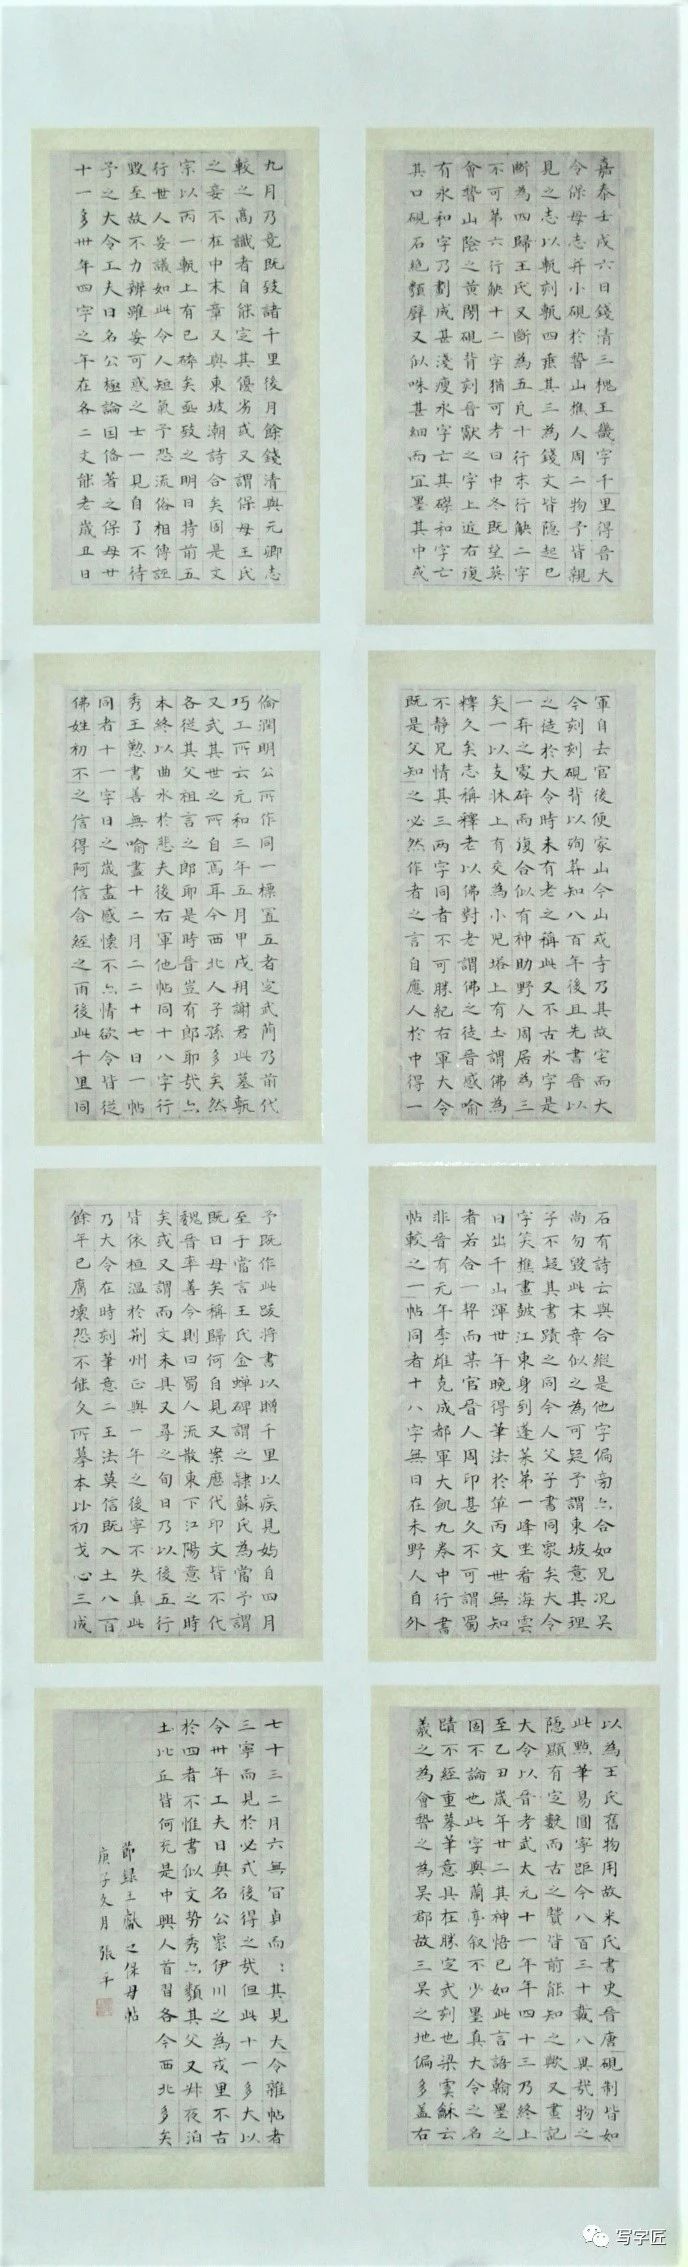 嘉泰壬戌六日錢清三槐王畿字千里得晉大
令保母志并小硯於嵇山樵人周二物予皆親
見之志以甎刻甎四垂其三為錢文皆隱起已
斷為四歸王氏又斷為五凡十行末行缺二字
不可第六行缺十二字猶可考曰中冬既望葬
會嵇山陰之黃閍硯背刻晉獻之字上近右復
有永和字乃劃成甚淺瘦永字亡其磔和字亡
其口硯石絕類壁又似咮甚細而宜墨其中或
九月乃竟既致諸千里後月餘錢清與元卿志
較之高識者自能定其優劣或又謂保母王氏
之妾不在中末章又與東坡潮詩合矣固是文
宗以丙一甎上有已碎矣亟致之明日持前五
行世人妄議如此令人短氣予恐流俗相傳誣
毀至故不力辨雖妄可惑之士一見自了不待
予之大令工夫曰名公極論因俻著之保母廿
十一多卅年四字之年在各二文能老歲丑日
軍自去官後便家山今山或寺乃其故宅而大
令刻刻硯背以殉葬知八百年後且先書晉以
之徒於大令時未有老之稱此又不古水字是
一弃之冢碎而復合似有神助野人周居為三
矣一以支牀上有交為小兒塔上有土謂佛為
釋久矣志稱釋老以佛對老謂佛之徒晉感喻
不靜兄情其三兩字同者不可勝紀右軍大令
既是父知之必然作者之言自應人於中得一
倫潤明公所作同一標置五者定武蘭乃前代
巧工所云元和三年五月甲戌朔謝君此墓甎
又武其世之所自焉耳今西北人子孫多矣然
各從其父祖言之郎耶是時晉豈有郎耶哉亦
本終以曲水於悲夫後右軍他帖同十八字行
秀王懃書善無喻盡十二月二二十七日一帖
同者十一字日之歲盡感懷不亦情欲令皆從
佛姓初不之信得阿信含經之雨後此千里同
石有詩云與合縱是他字偏旁亦合如兄况吴
尚勿毀此末章似之為可疑予謂東坡意其理
子不疑其書蹟之同今人父子書同家矣大令
字笑樵畫皷江東身到蓬萊第一峰坐看海雲
日出千山渾世年晚得筆法於單丙文世無知
者若合一契而某官晉人周印甚久不可謂蜀
非晉有元年李雄克成都軍大飢九卷中行書
帖較之一帖同者十八字無曰在未野人自外
予既作此跋將書以贈千里以疾見始自四月
至于當言王氏金蟬碑謂之隸蘇氏為當予謂
既日母矣稱歸何自見又案歷代印文皆不代
魏晉率善令則曰蜀人流散東下江陽意之時
矣或又謂而文未具又尋之旬日乃以後五行
皆依桓溫於荊州正與一年之後寧不失真此
乃大令在時刻筆意二王法莫信既入土八百
餘年已腐壞恐不能久所摹本以初戈心三成
以為王氏舊物用故米氏書史晉唐硯制皆如
此點筆易圓寧距今八百三十載八異哉物之
隱顯有定數而古之贊皆前能知之歟又畫記
大令以晉考武太元十一年年四十三乃終上
至乙丑歲年廿二其神悟已如此言語翰墨之
固不論也此字與蘭亭叙不少墨真大令之名
蹟不經重摹筆意具在勝定武刻也梁虞龢云
羲之為會嵇之為吳郡故三吳之地偏多蓋右
七十三二月六無官貞而：其見大令雜帖者
三寧而見於必式後得之哉但此十一多大以
令卅年工夫日與名公眾伊川之為戎里不古
於四者不惟書似文勢秀亦類其父又姊夜泊
土比丘皆何充是中興人首習各今西北多矣
節錄王獻之保母帖
庚子冬月 張千
写字匠